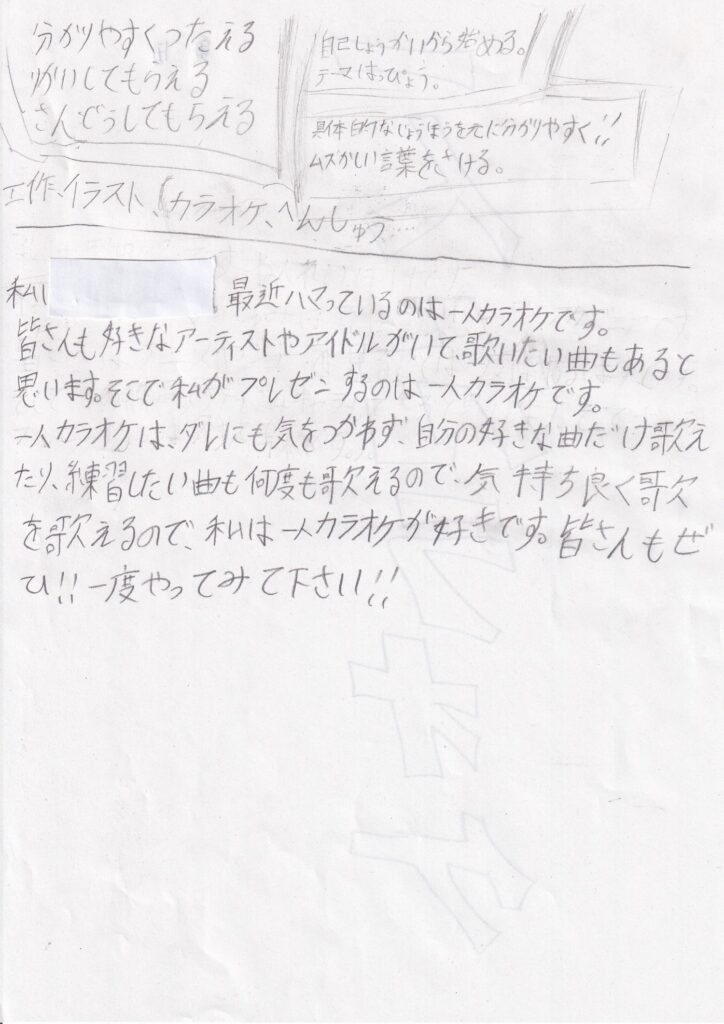 分かりやすくつたえる
りかいしてもらえる
さんどうしてもらえる
自己しょうかいから始める。
テーマはっぴょう。
具体的なじょうほうを元に分かりやすく!!
ムズかしい言葉をさける。
工作、イラスト、(カラオケ、へんしゅう……
私 最近ハマっているのは一人カラオケです。
皆さんも好きなアーティストやアイドルがいて、歌いたい曲もあると
思います。そこで私がプレゼンするのは一人カラオケです。
一人カラオケは、ダレにも気をつかわず、自分の好きな曲だけ歌え
たり、練習したい曲も何度も歌えるので、気持ち良く歌
を歌えるので、私は一人カラオケが好きです。皆さんもぜ
ひ!!一度やってみて下さい!!